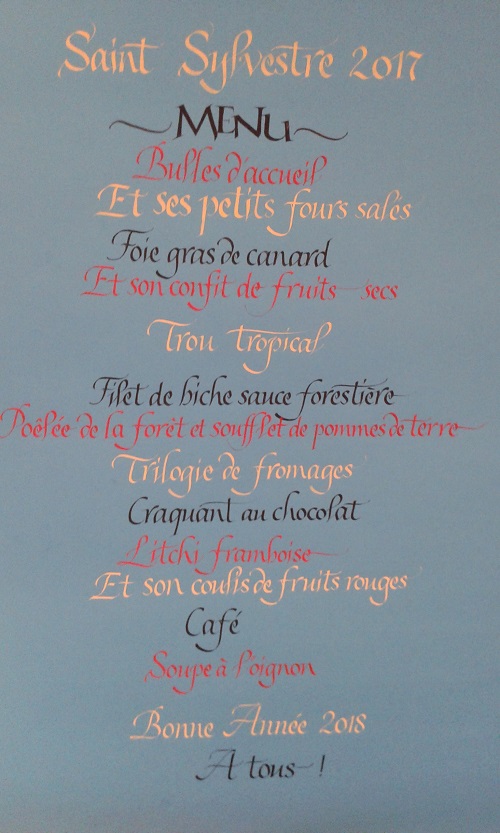 Saint Sylvestre 2017
~MENU~
Bulles d'accueil
Et ses petits fours salés
Foie gras de canard
Et son confit de fruits secs
Trou tropical
Filet de biche sauce forestière
Poêlée de la forêt et soufflet de pommes de terre
Trilogie de fromages
Craquant au chocolat
Litchi framboise
Et son coulis de fruits rouges
Café
Soupe à l'oignon
Bonne Année 2018
A tous !